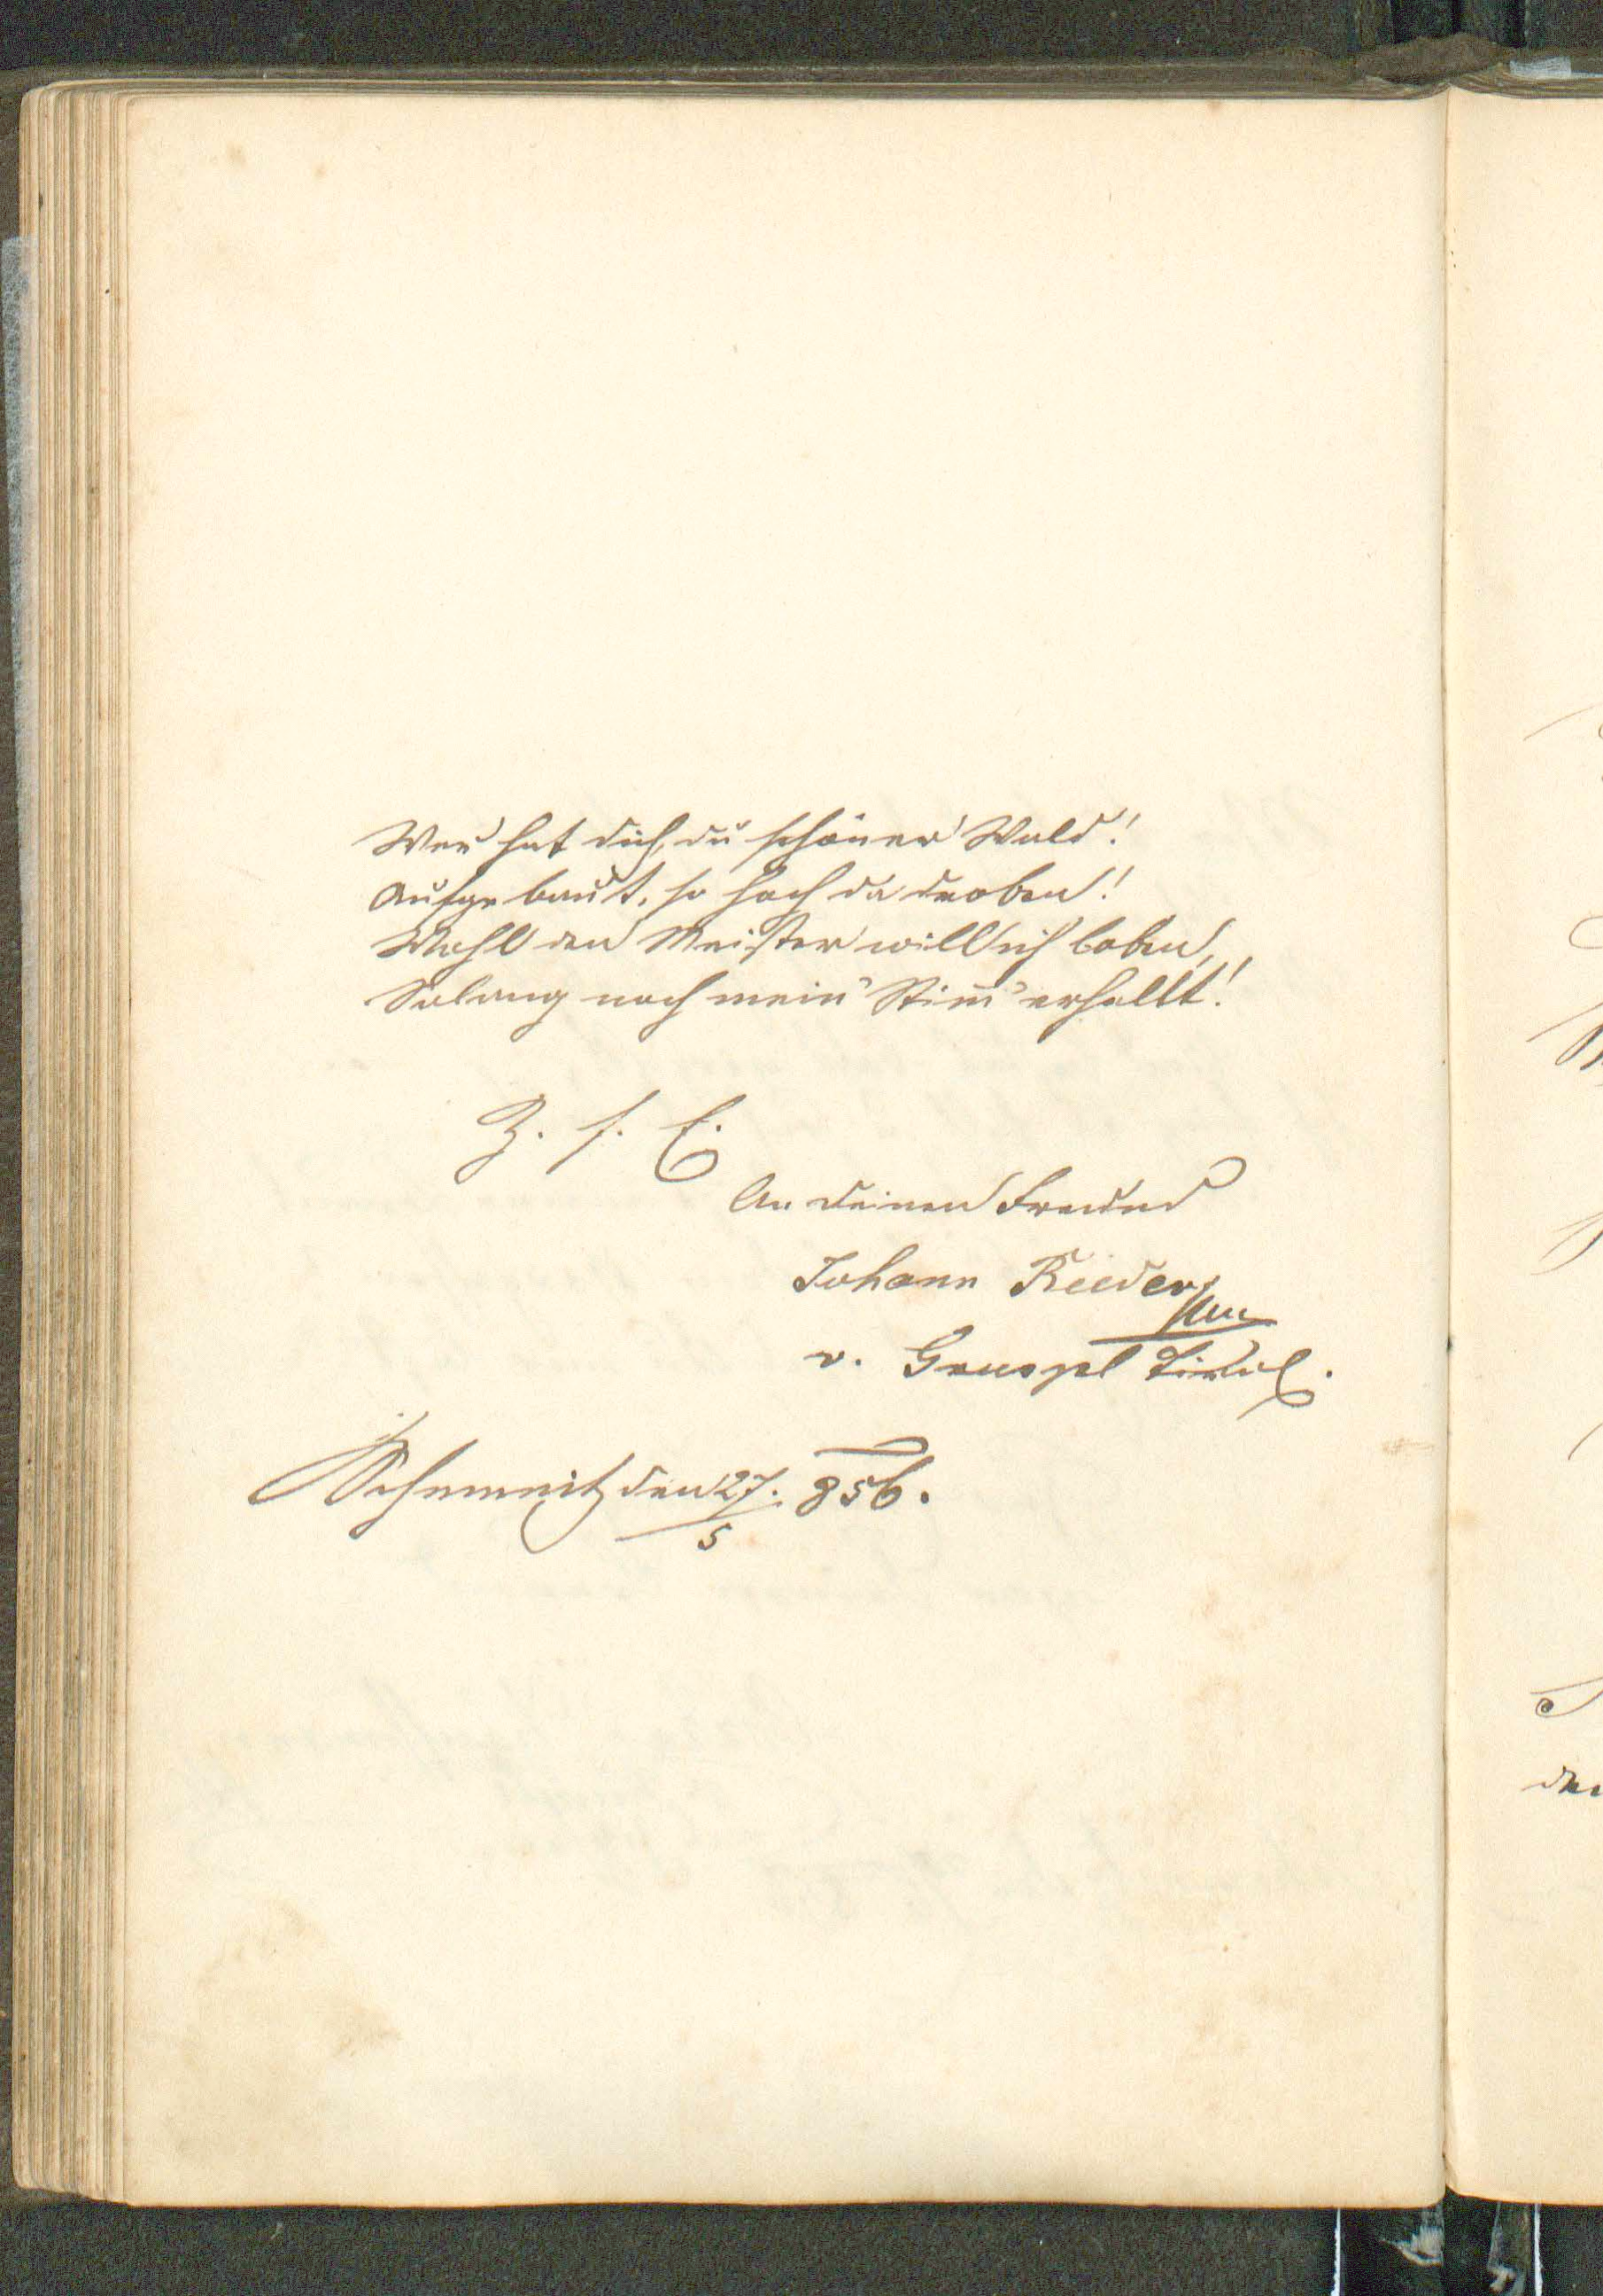 Wer hat dich, du schöner Wald!
Aufgebaut, so hoch da droben!
Wohl den Meister will ich loben,
Solang noch mein' Stim̄' erhallt!
Z. f. E.
An Deinen Freund
Johann Rieder
v. Tirol.
Schemnitz den 27./5 856.